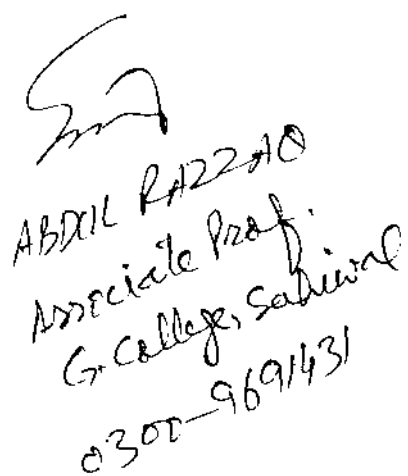 ABDUL RAZZAQ
Associate Prof.
G. College, Sahiwal
0300-9691431